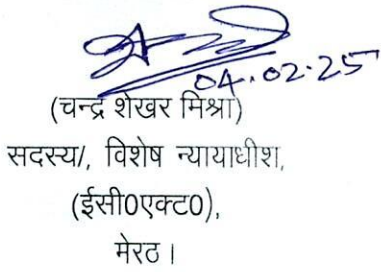 04.02.25
(चन्द्र शेखर मिश्रा)
सदस्य/, विशेष न्यायाधीश,
(ईसी0एक्ट0),
मेरठ।